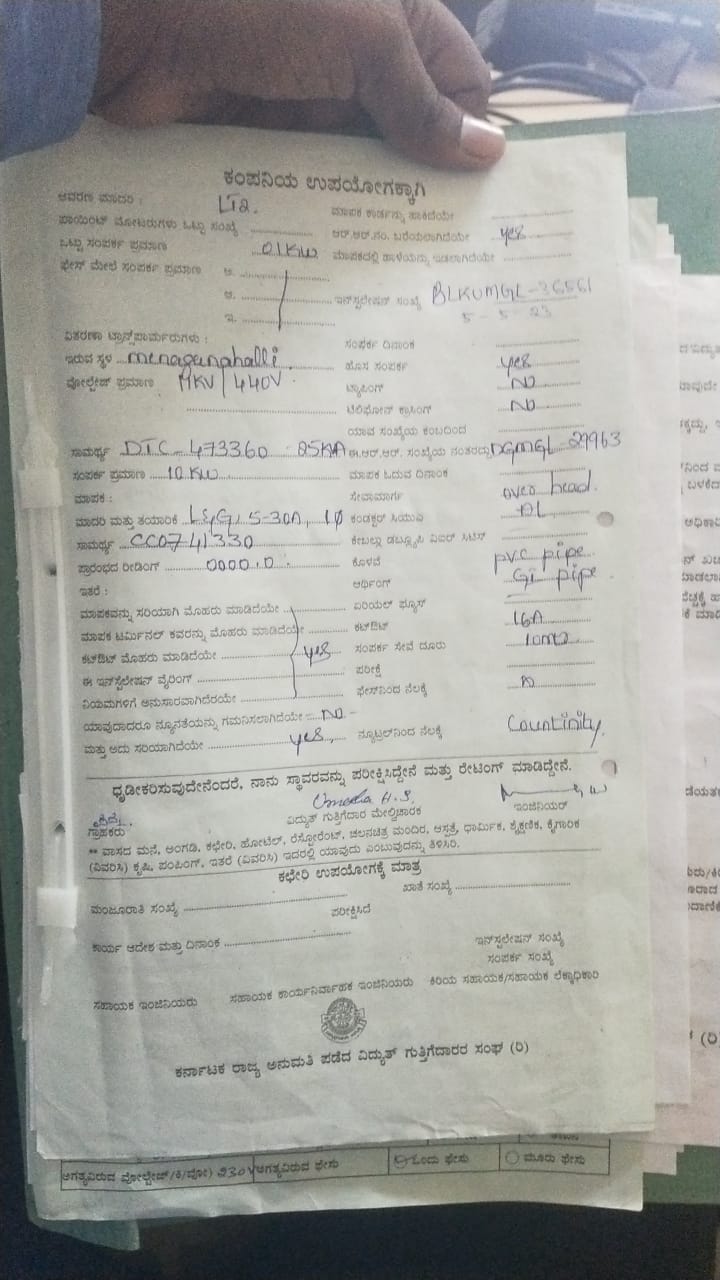 ಕಂಪನಿಯ ಉಪಯೋಗಕ್ಕಾಗಿ
ಆವರಣ ಮಾದರಿ : LT2. ಮಾಪಕ ಕಾರ್ಡನ್ನು ಹಾಕಿದೆಯೇ
ಪಾಯಿಂಟ್ ಮೋಟರುಗಳು ಒಟ್ಟು ಸಂಖ್ಯೆ ಆರ್.ಆರ್.ನಂ. ಬರೆಯಲಾಗಿದೆಯೇ yes
ಒಟ್ಟು ಸಂಪರ್ಕ ಪ್ರಮಾಣ 01KW ಮಾಪಕದಲ್ಲಿ ಹಾಳೆಯನ್ನು ಇಡಲಾಗಿದೆಯೇ
ಫೇಸ್ ಮೇಲೆ ಸಂಪರ್ಕ ಪ್ರಮಾಣ ಅ.
ಆ. ಇನ್ಸ್ಟಲೇಷನ್ ಸಂಖ್ಯೆ BLKUMGL-36561
ಇ. 5-5-23
ವಿತರಣಾ ಟ್ರಾನ್ಸ್‌ಫಾರ್ಮರುಗಳು : ಸಂಪರ್ಕ ದಿನಾಂಕ
ಇರುವ ಸ್ಥಳ menagunahalli. ಹೊಸ ಸಂಪರ್ಕ yes
ವೋಲ್ಟೇಜ್ ಪ್ರಮಾಣ 11KV/440V. ಟ್ಯಾಪಿಂಗ್ NO
ಟೆಲಿಫೋನ್ ಕ್ರಾಸಿಂಗ್ NO
ಯಾವ ಸಂಖ್ಯೆಯ ಕಂಬದಿಂದ
ಸಾಮರ್ಥ್ಯ DTC-473360 25KVA ಈ.ಆರ್.ಆರ್. ಸಂಖ್ಯೆಯ ನಂತರದ್ದು DGMGL-29963
ಸಂಪರ್ಕ ಪ್ರಮಾಣ 10KW ಮಾಪಕ ಓದುವ ದಿನಾಂಕ
ಮಾಪಕ : ಸೇವಾಮಾರ್ಗ over head.
ಮಾದರಿ ಮತ್ತು ತಯಾರಿಕೆ L&G, 5-30A, 1Ø ಕಂಡಕ್ಟರ್ ಸಿಯುವಿ AL
ಸಾಮರ್ಥ್ಯ CC0741330 ಕೇಬಲ್ಲು ಡಬ್ಲ್ಯೂಪಿ ಏಐಆರ್ ಸಿಟಿಸ್
ಪ್ರಾರಂಭದ ರೀಡಿಂಗ್ 0000.0 ಕೊಳವೆ PVC pipe
ಇತರೆ : ಅರ್ಥಿಂಗ್ GI pipe
ಮಾಪಕವನ್ನು ಸರಿಯಾಗಿ ಮೊಹರು ಮಾಡಿದೆಯೇ ಏರಿಯಲ್ ಫ್ಯೂಸ್
ಮಾಪಕ ಟರ್ಮಿನಲ್ ಕವರನ್ನು ಮೊಹರು ಮಾಡಿದೆಯೇ ಕಟ್‌ಔಟ್ 16A
ಕಟ್‌ಔಟ್ ಮೊಹರು ಮಾಡಿದೆಯೇ yes ಸಂಪರ್ಕ ಸೇವೆ ದೂರು
ಈ ಇನ್ಸ್ಟಲೇಷನ್ ವೈರಿಂಗ್ ಪರೀಕ್ಷೆ
ನಿಯಮಗಳಿಗೆ ಅನುಸಾರವಾಗಿದೆರಯೇ ಫೇಸ್‌ನಿಂದ ನೆಲಕ್ಕೆ
ಯಾವುದಾದರೂ ನ್ಯೂನತೆಯನ್ನು ಗಮನಿಸಲಾಗಿದೆಯೇ NO
ಮತ್ತು ಅದು ಸರಿಯಾಗಿದೆಯೇ yes, ನ್ಯೂಟ್ರಲ್‌ನಿಂದ ನೆಲಕ್ಕೆ Countinity.
ಧೃಡೀಕರಿಸುವುದೇನೆಂದರೆ, ನಾನು ಸ್ಥಾವರವನ್ನು ಪರೀಕ್ಷಿಸಿದ್ದೇನೆ ಮತ್ತು ರೇಟಿಂಗ್ ಮಾಡಿದ್ದೇನೆ.
Umesha H.S.
ಗ್ರಾಹಕರು ವಿದ್ಯುತ್ ಗುತ್ತಿಗೆದಾರ ಮೇಲ್ವಿಚಾರಕ ಇಂಜಿನಿಯರ್
** ವಾಸದ ಮನೆ, ಅಂಗಡಿ, ಕಛೇರಿ, ಹೋಟೆಲ್, ರೆಸ್ಟೋರೆಂಟ್, ಚಲನಚಿತ್ರ ಮಂದಿರ, ಆಸ್ಪತ್ರೆ, ಧಾರ್ಮಿಕ, ಶೈಕ್ಷಣಿಕ, ಕೈಗಾರಿಕ
(ವಿವರಿಸಿ) ಕೃಷಿ, ಪಂಪಿಂಗ್, ಇತರೆ (ವಿವರಿಸಿ) ಇದರಲ್ಲಿ ಯಾವುದು ಎಂಬುವುದನ್ನು ತಿಳಿಸಿರಿ.
ಕಛೇರಿ ಉಪಯೋಗಕ್ಕೆ ಮಾತ್ರ
ಮಂಜೂರಾತಿ ಸಂಖ್ಯೆ ಖಾತೆ ಸಂಖ್ಯೆ
ಪರೀಕ್ಷಿಸಿದೆ
ಕಾರ್ಯ ಆದೇಶ ಮತ್ತು ದಿನಾಂಕ ಇನ್ಸ್ಟಲೇಷನ್ ಸಂಖ್ಯೆ
ಸಂಪರ್ಕ ಸಂಖ್ಯೆ
ಸಹಾಯಕ ಇಂಜಿನಿಯರು ಸಹಾಯಕ ಕಾರ್ಯನಿರ್ವಾಹಕ ಇಂಜಿನಿಯರು ಕಿರಿಯ ಸಹಾಯಕ/ಸಹಾಯಕ ಲೆಕ್ಕಾಧಿಕಾರಿ
ಕರ್ನಾಟಕ ರಾಜ್ಯ ಅನುಮತಿ ಪಡೆದ ವಿದ್ಯುತ್ ಗುತ್ತಿಗೆದಾರರ ಸಂಘ (ರಿ)
ಅಗತ್ಯವಿರುವ ವೋಲ್ಟೇಜ್/ಕಿ/ವೋ) 230V ಅಗತ್ಯವಿರುವ ಫೇಸು ಒಂದು ಫೇಸು ಮೂರು ಫೇಸು